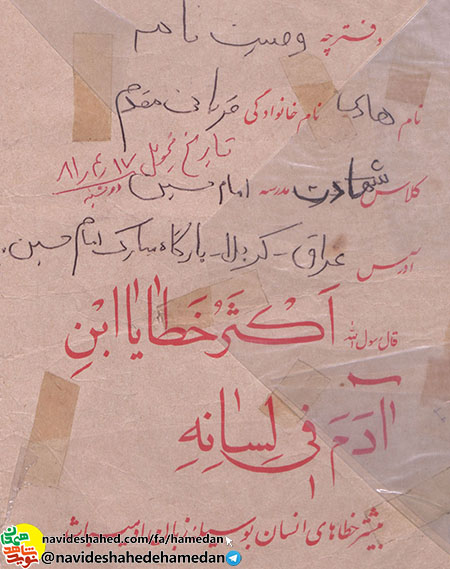 دفترچه وصیت نامه
نام هادی نام خانوادگی قربانی مقدم
تاریخ تحویل ۸۱٫۴٫۱۷
کلاس شهادت مدرسه امام حسین دوشنبه
آدرس عراق - کربلا - بارگاه مبارک امام حسین.
قال رسول الله اَکْثَرُ خَطایا ابْنِ
آدَمَ فی لِسانِهِ
بیشتر خطاهای انسان بوسیله زبان او میباشد
navideshahed.com/fa/hamedan
@navideshahedehamedan